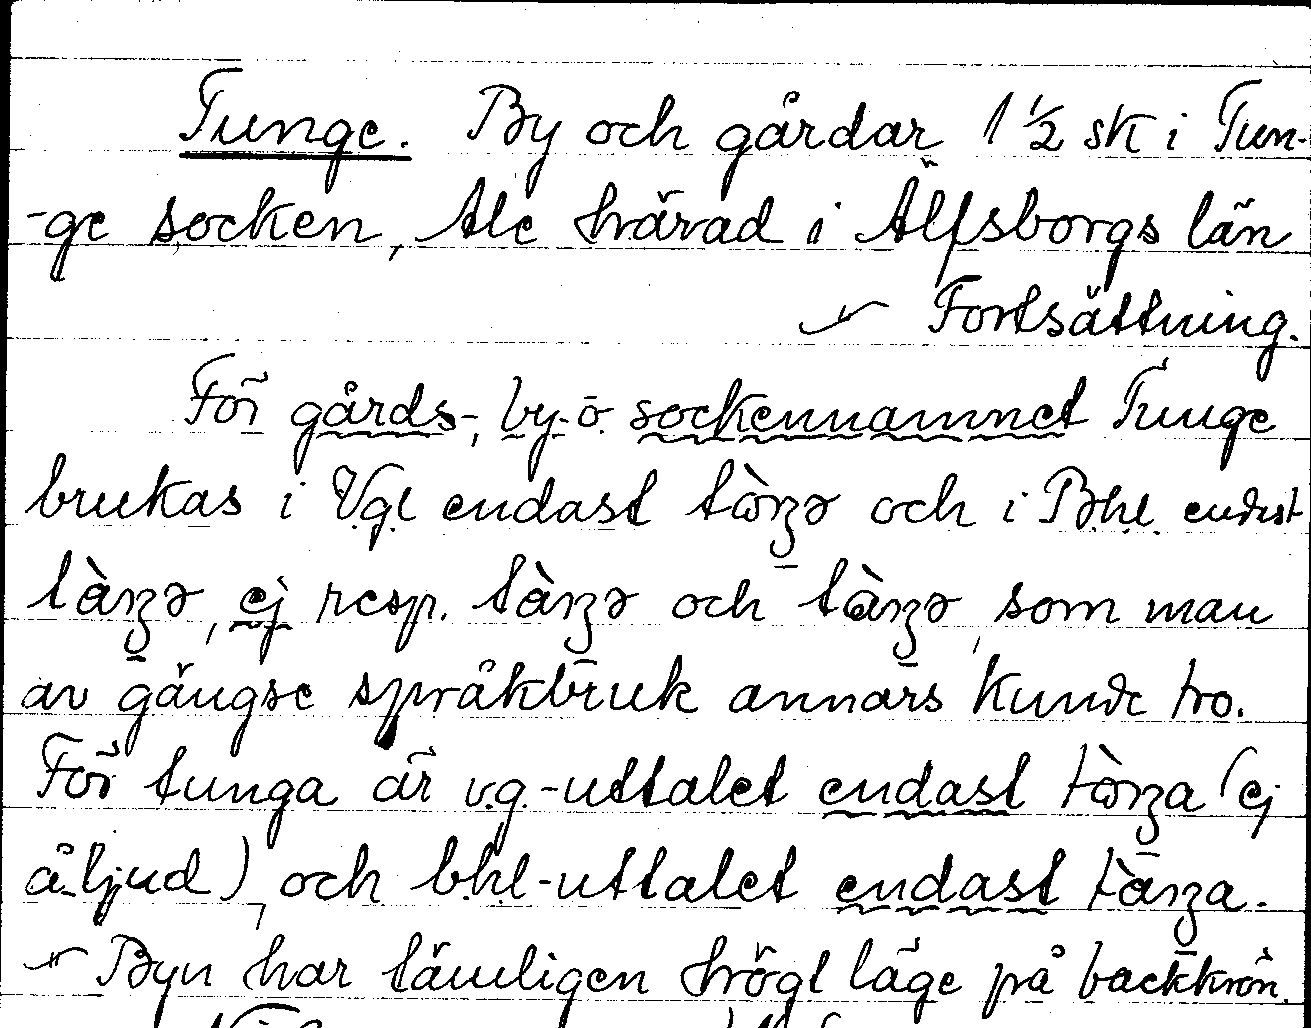 Tunge. By och gårdar 1 ½ sk i Tun-
-ge socken, Ale härad i Älfsborgs län
Fortsättning.
För gårds-, by- o. sockennamnet Tunge
brukas i Vgl endast och i Bhl. endast
ej resp. och som man
av gängse språkbruk annars kunde tro.
För tunga är v.g.-uttalet endast (ej
å-ljud), och bhl-uttalet endast
Byn har tämligen högt läge på backkrön.